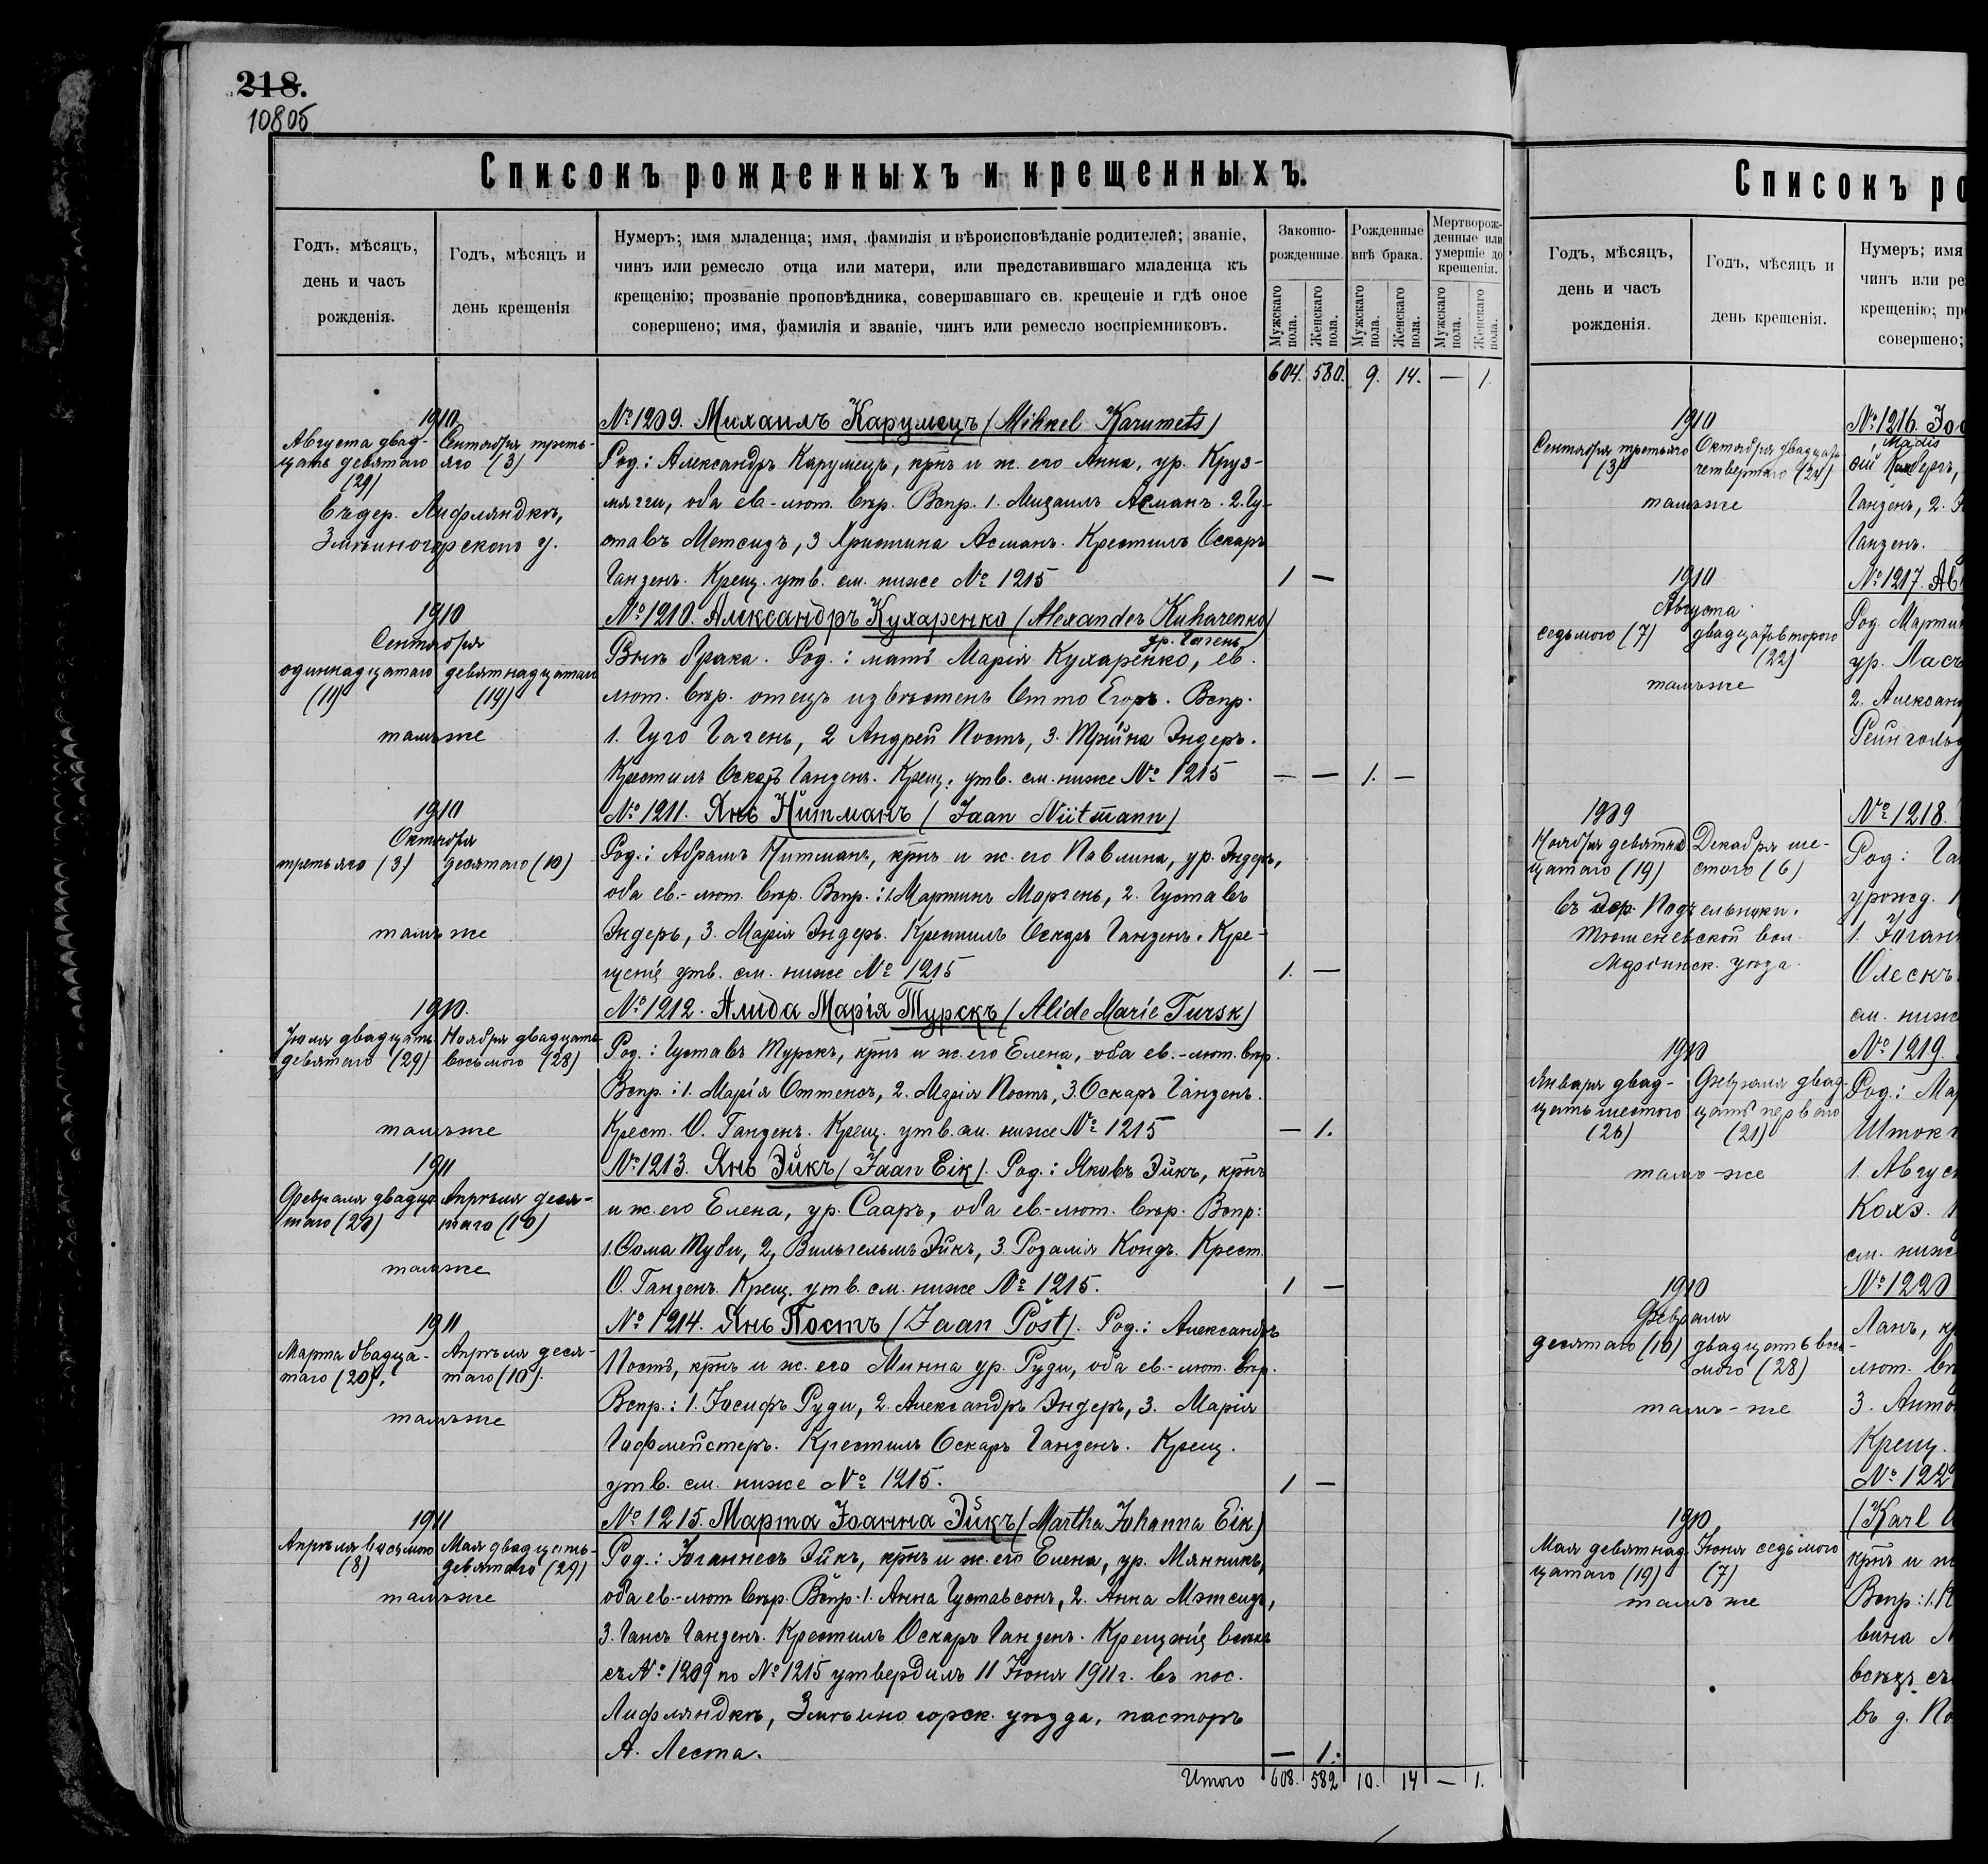 218.
108об
Списокъ рожденныхъ и крещенныхъ.
Годъ, мѣсяцъ,
день и часъ
рожденія.
Годъ, мѣсяцъ и
день крещенія
Нумеръ; имя младенца; имя, фамилія и вѣроисповѣданіе родителей; званіе,
чинъ или ремесло отца или матери, или представившаго младенца къ
крещенію; прозваніе проповѣдника, совершавшаго св. крещеніе и гдѣ оное
совершено; имя, фамилія и званіе, чинъ или ремесло воспріемниковъ.
Законно-
рожденные.
Рожденные
внѣ брака.
Мертворож-
денные или
умершіе до
крещенія.
Мужскаго пола.
Женскаго пола.
Мужскаго пола.
Женскаго пола.
Мужскаго пола.
Женскаго пола.
604. 580. 9. 14. — 1.
1910
Августа двад-
цать девятаго
(29)
Сентября треть-
яго (3)
въ дер. Лифляндкѣ,
Змѣиногорскаго у.
№ 1209. Михаилъ Карумецъ (Mihkel Karumets)
Род.: Александръ Карумецъ, крнъ и ж. его Анна, ур. Круз-
мягги, оба ев.-лют. вѣр. Вспр. 1. Михаилъ Асманъ. 2. Гу-
ставъ Метсидъ, 3 Христина Асманъ. Крестилъ Оскаръ
Ганзенъ. Крещ. утв. см. ниже № 1215
1 —
1910
Сентября
одиннадцатаго
(11)
девятнадцатаго
(19)
тамъже
№ 1210. Александръ Кухаренко (Alexander Kuharenko)
ур. Гагенъ
Внѣ брака. Род.: мать Марія Кухаренко, ев.
лют. вѣр. отецъ извѣстенъ Отто Егоръ. Вспр.
1. Гуго Гагенъ, 2 Андрей Постъ, 3. Трійна Эндеръ.
Крестилъ Оскаръ Ганзенъ. Крещ. утв. см. ниже № 1215
— — 1. —
1910
Октября
третьяго (3)
десятаго (10)
тамъ же
№ 1211. Янъ Нитманъ (Jaan Niitmann)
Род.: Абрамъ Нитманъ, крнъ и ж. его Павлина, ур. Эндеръ,
оба ев.-лют. вѣр. Вспр.: 1. Мартинъ Моргенъ, 2. Густавъ
Эндеръ, 3. Марія Эндеръ. Крестилъ Оскаръ Ганзенъ. Кре-
щеніе утв. см. ниже № 1215
1. —
1910.
Іюля двадцать
девятаго (29)
Ноября двадцать
восьмого (28)
тамъже
№ 1212. Алида Марія Турскъ (Alide Marie Tursk)
Род.: Густавъ Турскъ, крнъ и ж. его Елена, оба ев.-лют. вѣр.
Вспр.: 1. Марія Оттенсъ, 2. Марія Постъ, 3. Оскаръ Ганзенъ.
Крест. О. Ганзенъ. Крещ. утв. см. ниже № 1215
— 1.
1911
Февраля двадца-
таго (20)
Апрѣля деся-
таго (10)
тамъже
№ 1213. Янъ Эйкъ (Jaan Eik). Род.: Яковъ Эйкъ, крнъ
и ж. его Елена, ур. Сааръ, оба ев.-лют. вѣр. Вспр:
1. Ѳома Туби, 2, Вильгельмъ Эйкъ, 3. Розалія Кондъ. Крест.
О. Ганзенъ. Крещ. утв. см. ниже № 1215.
1 —
1911
Марта двадца-
таго (20).
Апрѣля деся-
таго (10).
тамъже
№ 1214. Янъ Постъ (Jaan Post). Род.: Александръ
Постъ, крнъ и ж. его Минна ур. Руди, оба ев.-лют. вѣр.
Вспр.: 1. Іосифъ Руди, 2. Александръ Эндеръ, 3. Марія
Гофмейстеръ. Крестилъ Оскаръ Ганзенъ. Крещ.
утв. см. ниже № 1215.
1 —
1911
Апрѣля восьмого
(8)
Мая двадцать-
девятаго (29)
тамъже
№ 1215. Марта Іоанна Эйкъ (Martha Johanna Eik)
Род.: Іоганнесъ Эйкъ, крнъ и ж. его Елена, ур. Мянникъ,
оба ев.-лют. вѣр. Вспр. 1. Анна Густавсонъ, 2. Анна Мэтсидъ,
3. Гансъ Ганзенъ. Крестилъ Оскаръ Ганзенъ. Крещеніе всѣхъ
съ № 1209 по № 1215 утвердилъ 11 Іюня 1911 г. въ пос.
Лифляндкѣ, Змѣиногорск. уѣзда, пасторъ
А. Леста.
— 1.
Итого 608. 582 10. 14 — 1.
Списокъ ро
Годъ, мѣсяцъ,
день и часъ
рожденія.
Годъ, мѣсяцъ и
день крещенія.
Нумеръ; имя
чинъ или ре
крещенію; пр
совершено;
1910
Сентября третьяго
(3)
Октября двадцать
четвертаго (24)
тамъже
№ 1216. Іоо
Madis
Ганзенъ, 2.
Ганзенъ.
1910
Августа
седьмого (7)
двадцать второго
(22)
тамъже
№ 1217. Ав
Род. Мартин
ур. Ласъ
2. Александ
Рейнгольд
1909
Ноября девятнад
цатаго (19)
Декабря ше-
стого (6)
въ дер. Подъельники.
Тюменевской вол.
Маріинск. уѣзда.
№ 1218.
Род: Га
урожд.
1. Іоган
Олескъ.
см. ниж
1910
Января двад-
цать шестого
(26)
Февраля двад-
цать перваго
(21)
тамъ-же
№ 1219.
Род.: Мар
Штокк
1. Август
Колэ.
см. ниже
1910
Февраля
десятаго (10)
двадцать вось-
мого (28)
тамъ-же
№ 1220
Ланъ, кр
лют. вѣ
3. Анто
Крещ.
1910
Мая девятнад
цатаго (19)
Іюня седьмого
(7)
тамъ же
№ 122
(Karl
крнъ и ж
Вспр: 1.
вина
всѣхъ съ
въ д. По